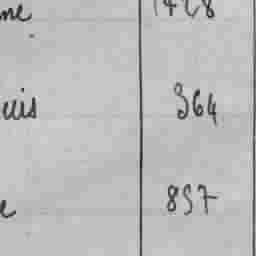 me 1428
uis 364
e 857